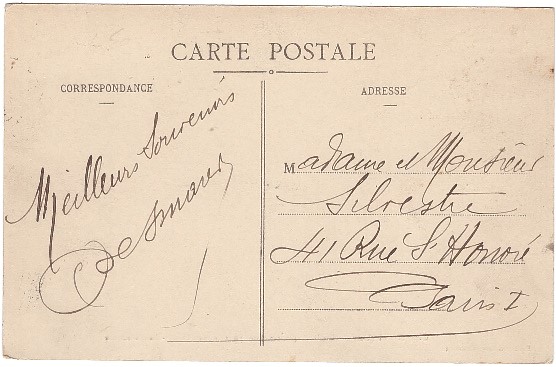 CARTE POSTALE
CORRESPONDANCE
ADRESSE
Meilleurs Souvenirs
Madame et Monsieur
Silvestre
41 Rue St Honoré
Paris I